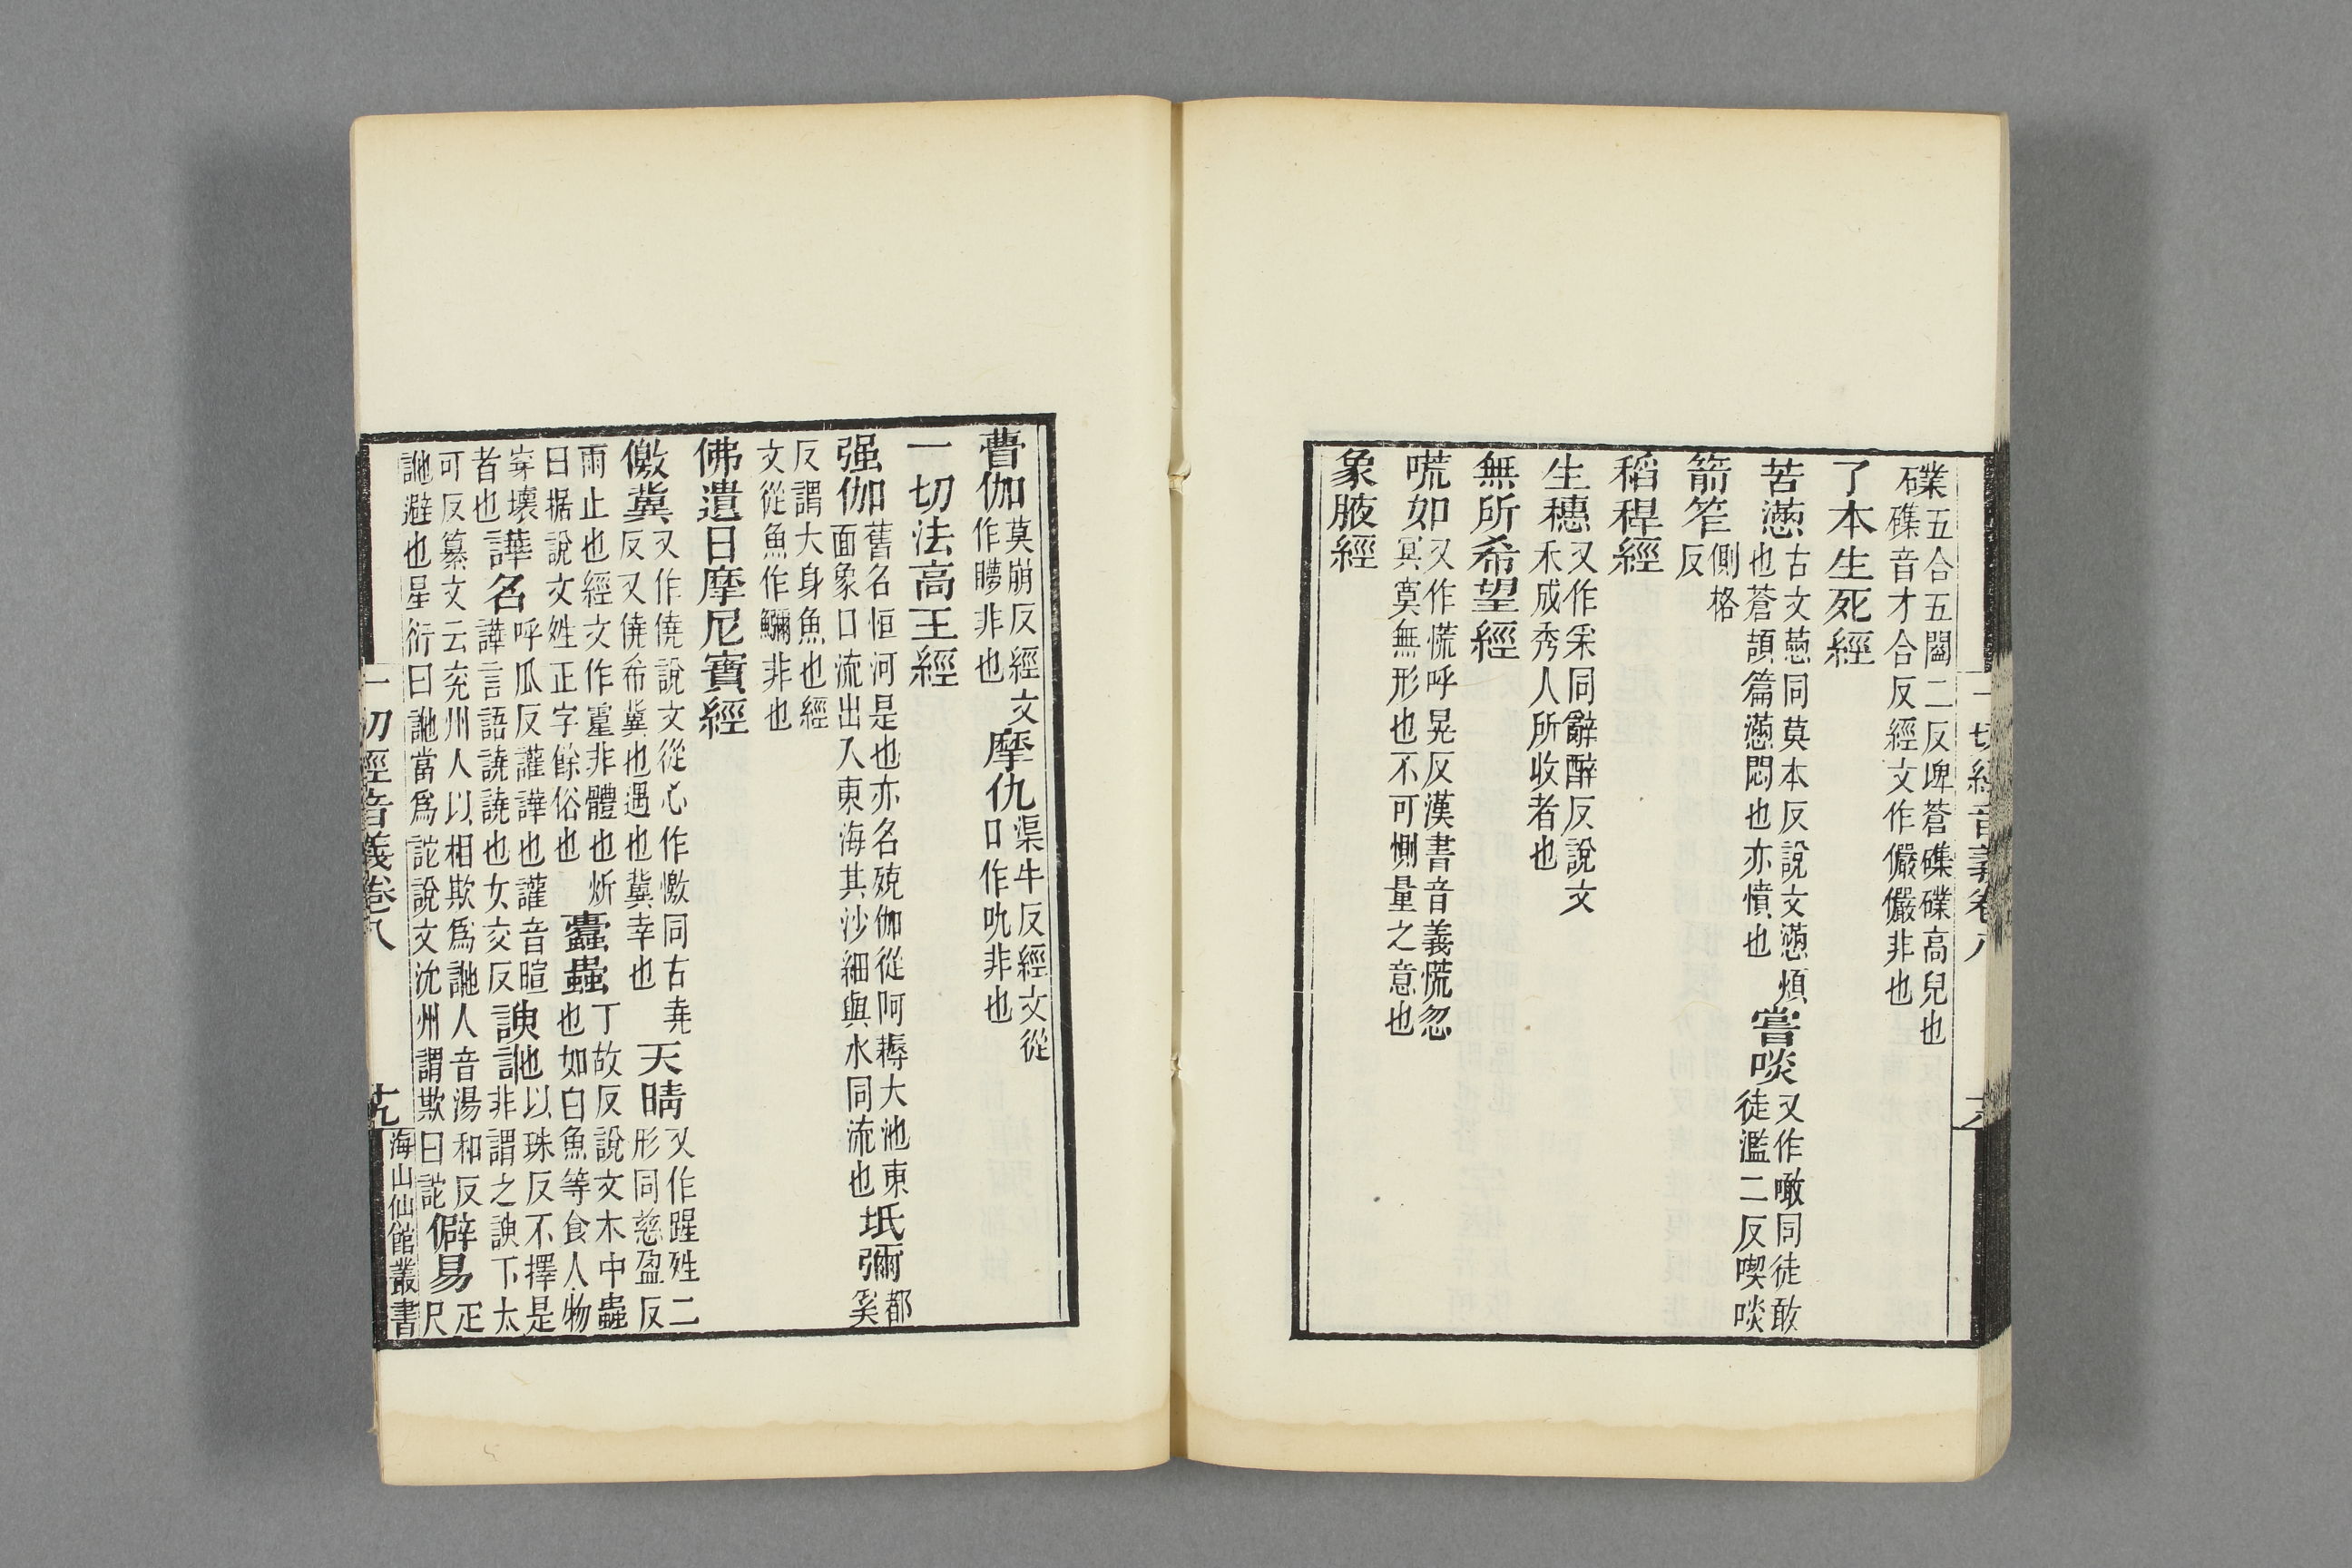 礏五合五闔二反埤蒼礁礏高皃也
磼音才合反經文作儼儼非也
了本生死經
苦懣古文懑同莫本反說文懣煩
也蒼頡篇懣悶也亦憤也
嘗啖又作噉同徒敢
徒濫二反喫啖
箭笮側格
反
稻稈經
生穗又作采同辭醉反說文
禾成秀人所收者也
無所希望經
㗬如又作慌呼晃反漢書音義慌忽
冥寞無形也不可惻量之意也
象腋經
一切經音義卷八
瞢伽莫崩反經文
作瞢非也
摩仇渠牛反經文從
口作吼非也
一切法高王經
强伽舊名恒河是也亦名殑伽從阿耨大池東
面象口流出入東海其沙細與水同流也
坻彌都
奚
反謂大身魚也經
文從魚作鸍非也
佛遺日摩尼寶經
儌冀又作僥說文從心作憿同古堯
反又僥希冀也遇也冀幸也
天晴又作暒姓二
形同慈盈反
雨止也經文作霻非體也炘
曰据說文姓正字餘俗也
蠹蟲丁故反說文木中蟲
也如白魚等食人物
穿壞
者也
譁名呼瓜反讙譁也讙音暄
譁言語譊譊也女交反
諛訑以珠反不擇是
非謂之諛下太
可反纂文云兖州人以相欺爲訑人音湯和反
訑避也星衍曰訑當爲詑說文沇州謂欺曰詑
僻易疋
尺
一切經音義卷八
十九
海山仙館叢書